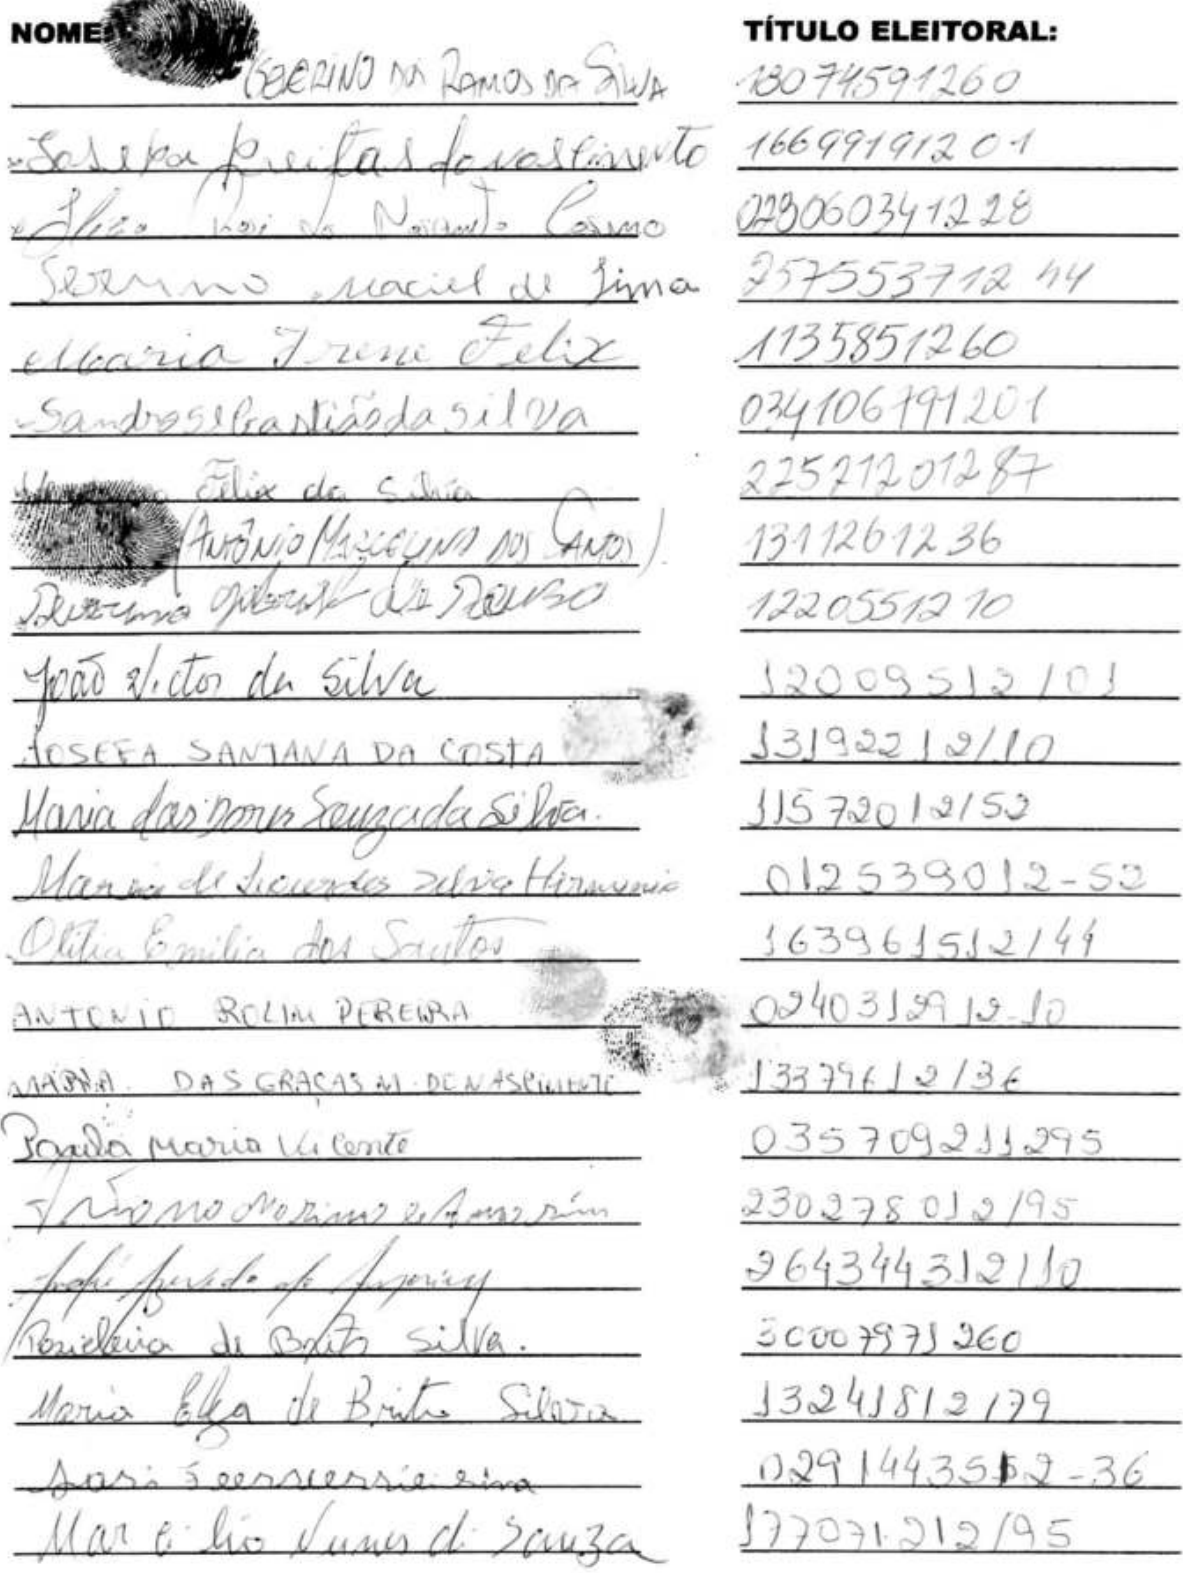 NOME: TÍTULO ELEITORAL:
(SEVERINO DOS RAMOS DA SILVA 18074591260
Josepa Freitas do nascimento 166991912 01
Cosmo 023060341228
maciel de Lima 257553712 44
Maria Irene Felix 1135851260
Sandro sebastião da silva 034106791201
Felix da Silvia 225212012 87
(ANTÔNIO MARCELINO DOS SANTOS) 1311261236
Severino de Souza 1220551210
João Victor da Silva 12009512/01
JOSEFA SANTANA DA COSTA 13192212/10
Maria das Dores Souza da Silva. 11572012/52
Maria de Lourdes Silva 012539012-52
Olitia Emilia dos Santos 163961512/44
ANTONIO ROLIM PEREIRA 0240312912-10
MARIA DAS GRAÇAS M. DO NASCIMENTO 13379612/36
Paula Maria Vicente 035709211295
230278012/95
264344312/10
de Brito Silva. 30007971260
Maria Elza de Brito Silva 13241812/79
02914435512-36
Marcilio Nunes di Souza 177071.212/95